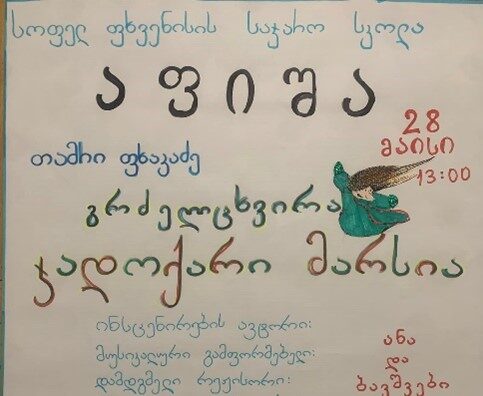 სოფელ ფხვენისის საჯარო სკოლა
აფიშა
28
მაისი
13:00
თამრი ფხაკაძე
გრძელცხვირა
ჯადოქარი მარსია
ინსცენირების ავტორი:
მუსიკალური გამფორმებელი:
დამდგმელი რეჟისორი:
ანა
და
ბავშვები